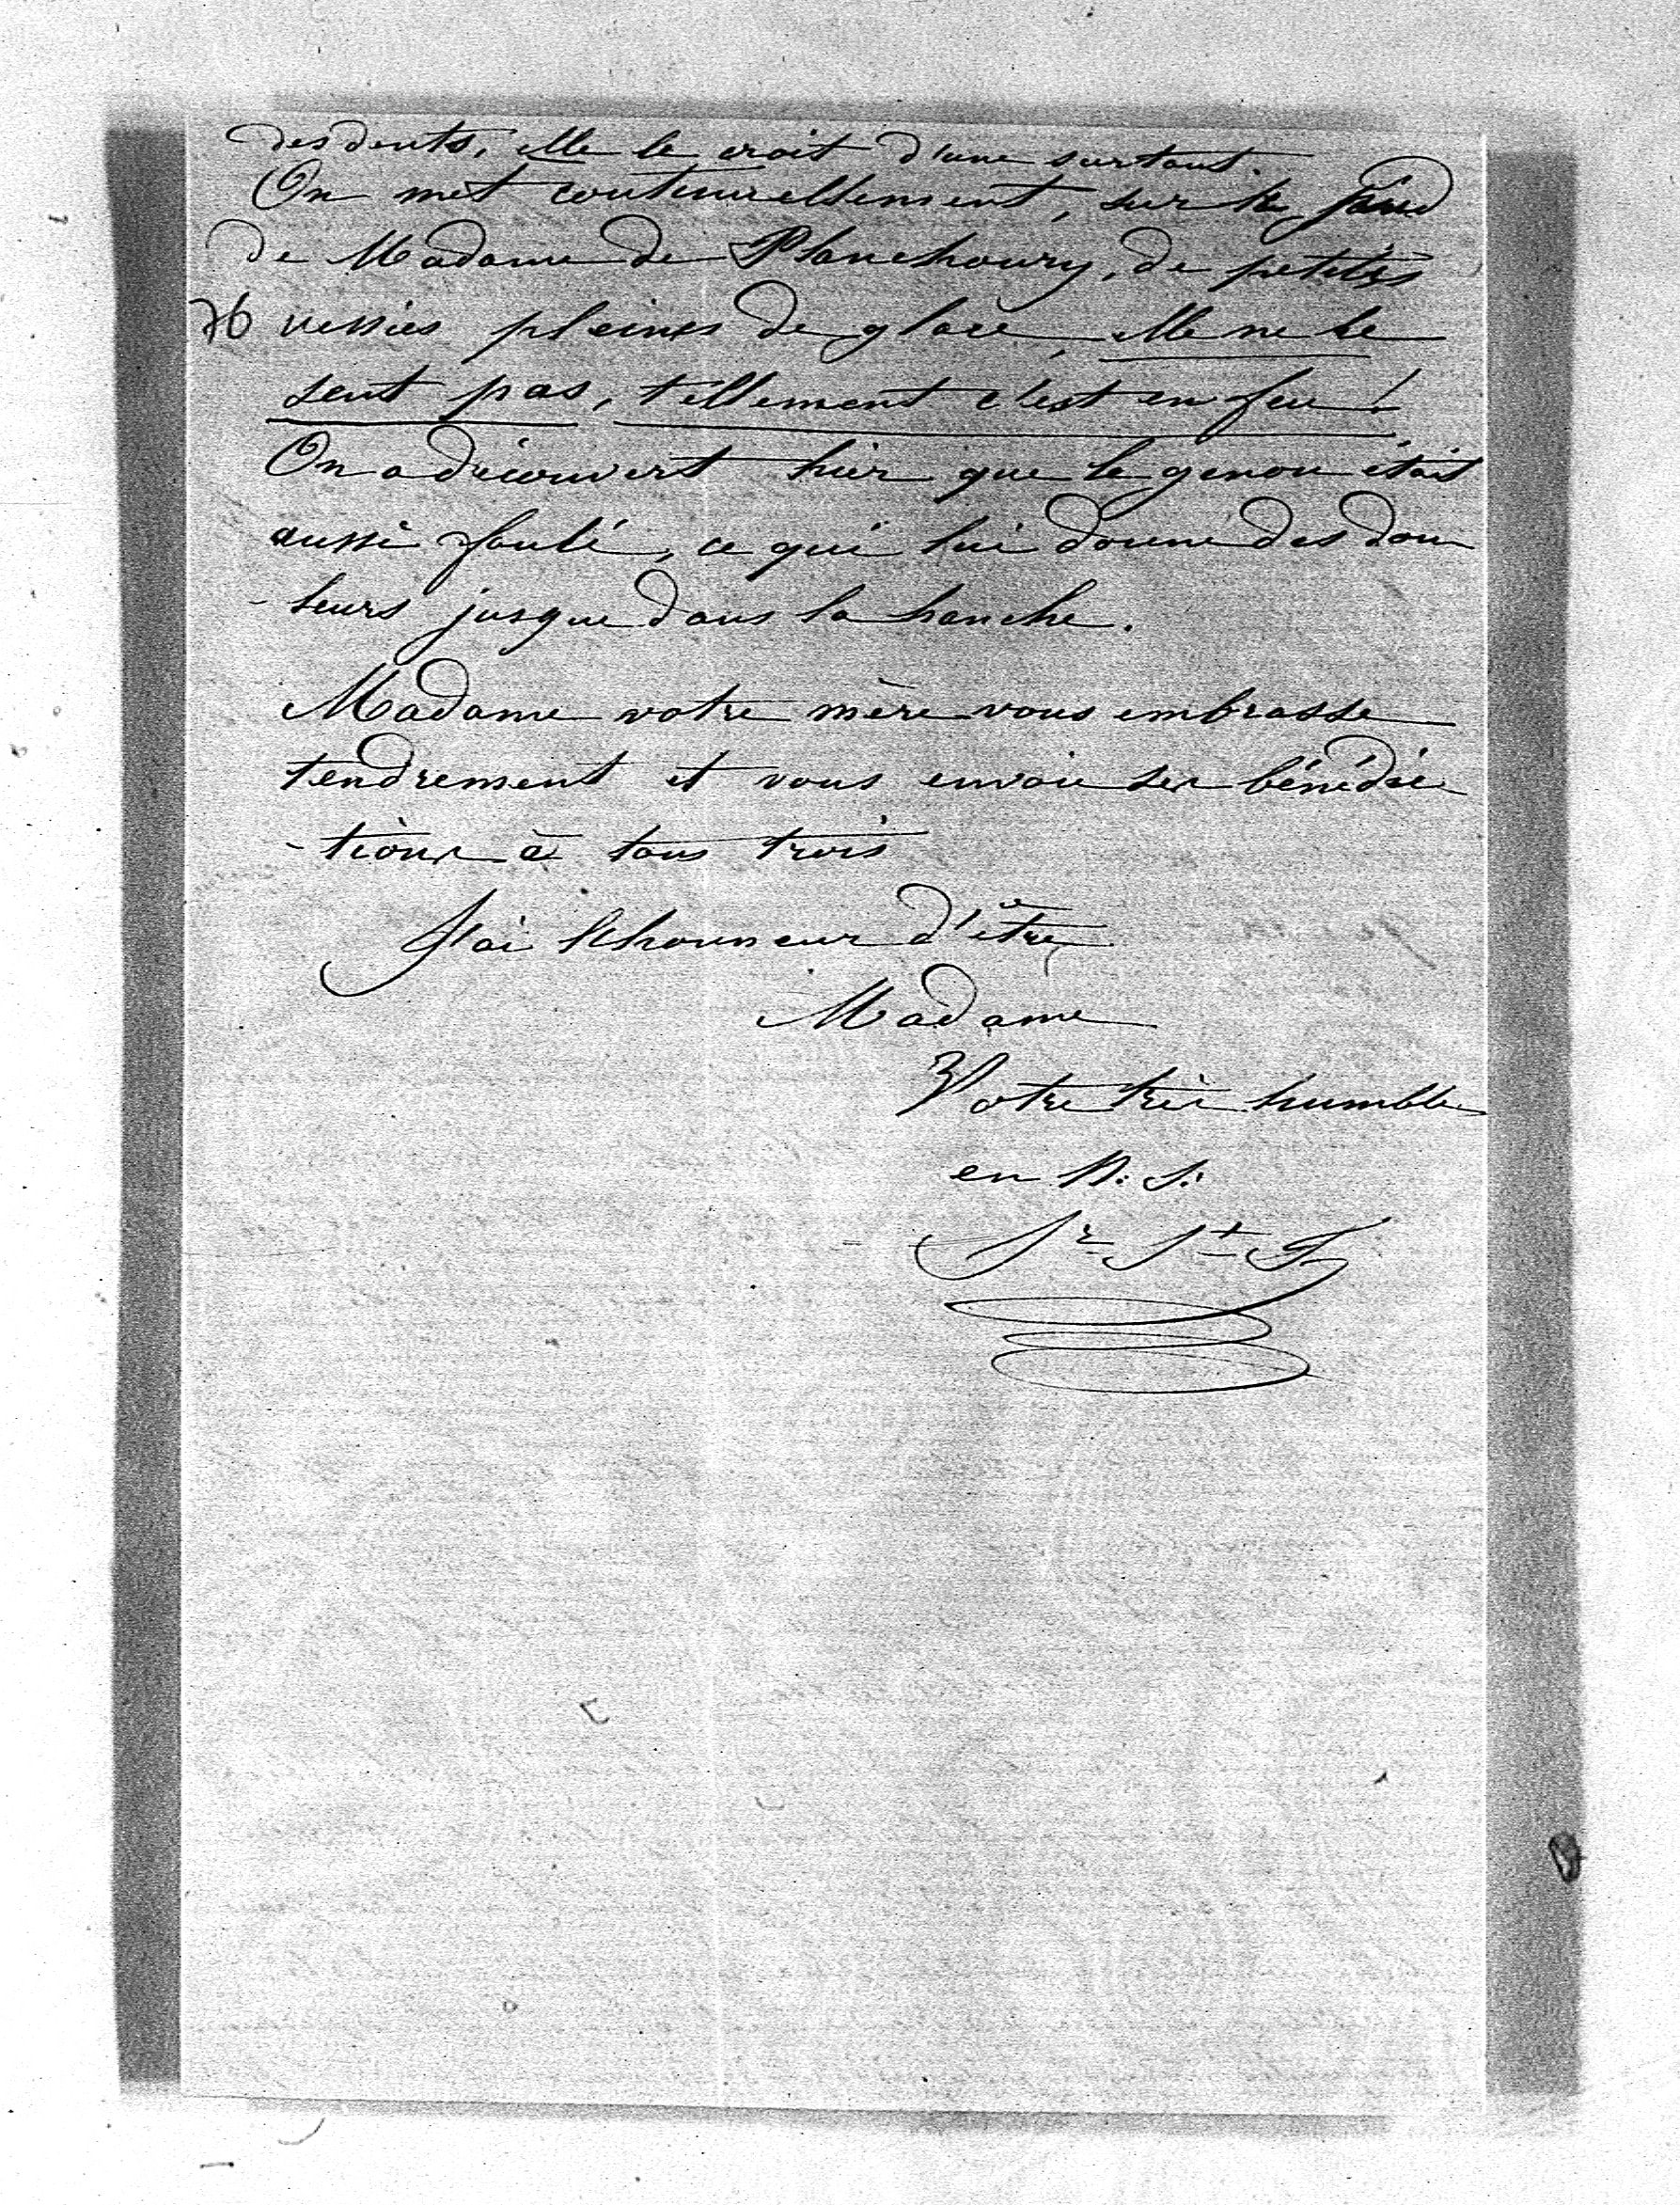 des dents, elle le croit d'une surtout.
On met continuellement, sur le pied
de Madame de Planchoury, de petites
76 vessies pleines de glace, elle ne le
sent pas, tellement c'est en feu!
On a découvert hier que le genou était
aussi foulé, ce qui lui donne des dou
-leurs jusque dans la hanche.
Madame votre mère vous embrasse
tendrement et vous envoie ses bénédic
-tions à tous trois
J'ai l'honneur d'être
Madame
Votre très humble
en N. S.
Sr St F